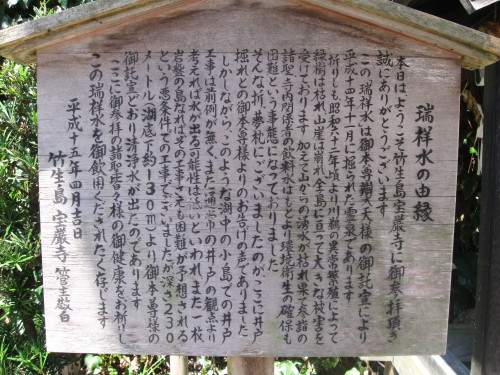 瑞祥水の由縁
本日はようこそ竹生島宝厳寺に御参拝頂き
誠にありがとうございます
この瑞祥水は御本尊辯才天様の御託宣により
平成十四年十一月に掘られた霊泉であります
折りしも昭和六十二年頃より川鵜の異常繁殖によって
樹木は枯れ山崖は崩れ全島に亘って大きな被害を
受けております 加えて山からの湧水が枯れ果て参詣の
諸聖寺関係者の飲料水はもとより環境衛生の確保も
困難という事態になっておりました
そんな折、夢枕にございましたのがここに井戸
掘れとの御本尊様よりのお告げの声でありました
しかしながら、このような湖中の小島での井戸
工事は前例が無く、また通常の井戸の観点より
考えれば水が出る可能性は薄いといわれ、また一枚
岩盤の島なればその工事こそも困難が予想される
という悪条件下の工事でございましたが深さ230
メートル(湖底下約130m)より御本尊様の
御託宣どおり清浄水が出たのであります
ここに御参拝の諸聖皆々様の御健康を祈りし
この瑞祥水を御飲用くだされたく存じます
平成十五年四月吉日
竹生島 宝厳寺 管主敬白